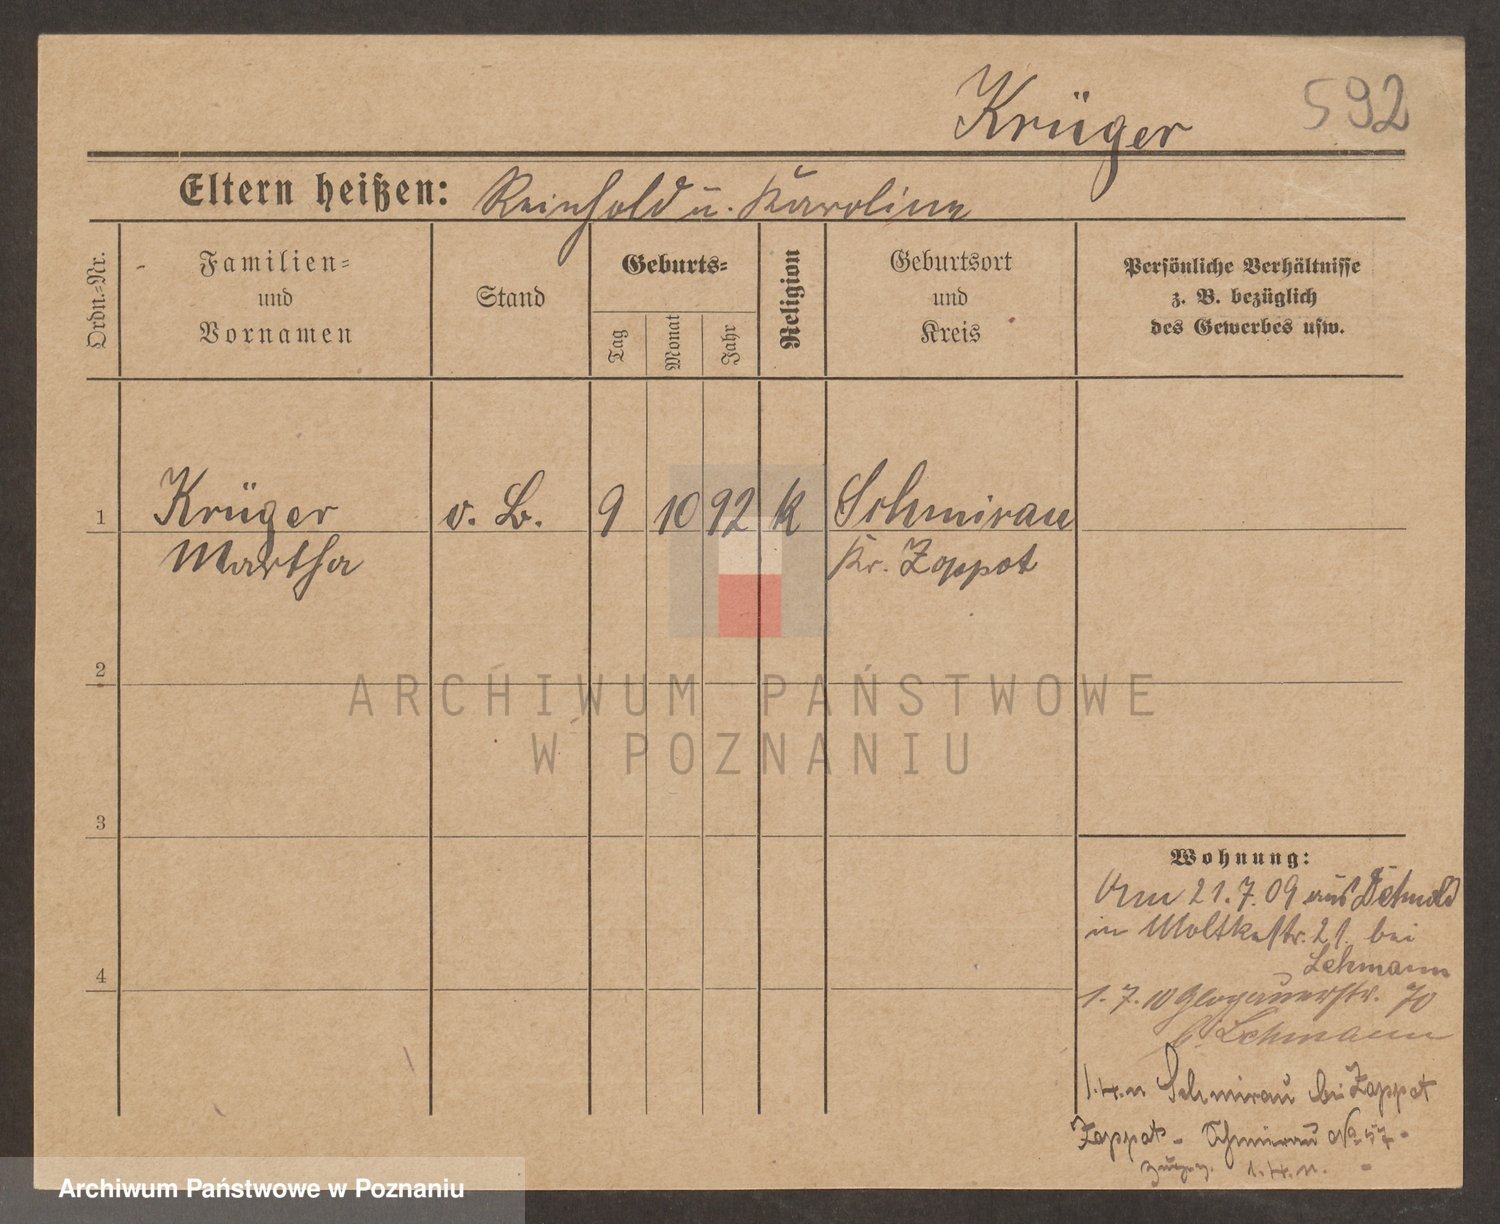 Krüger 592
Eltern heißen: Reinhold u. Karoline
Ordn.-Nr.
Familien-
und
Vornamen
Stand
Geburts-
Tag
Monat
Jahr
Religion
Geburtsort
und
Kreis
Persönliche Verhältnisse
z. B. bezüglich
des Gewerbes usw.
1 Krüger v. B. 9 10 92 k Schmirau
Martha Kr. Zoppot
2
3
4
Wohnung:
Vm 21.7.09 aus Detmold
in Moltkestr. 21. bei
Lehmann
1.7.10 Glogauerstr. 70
b. Lehmann
Schmirau bei Zoppot
Zoppot - Schmirau No 57-
ARCHIWUM PAŃSTWOWE
W POZNANIU
Archiwum Państwowe w Poznaniu